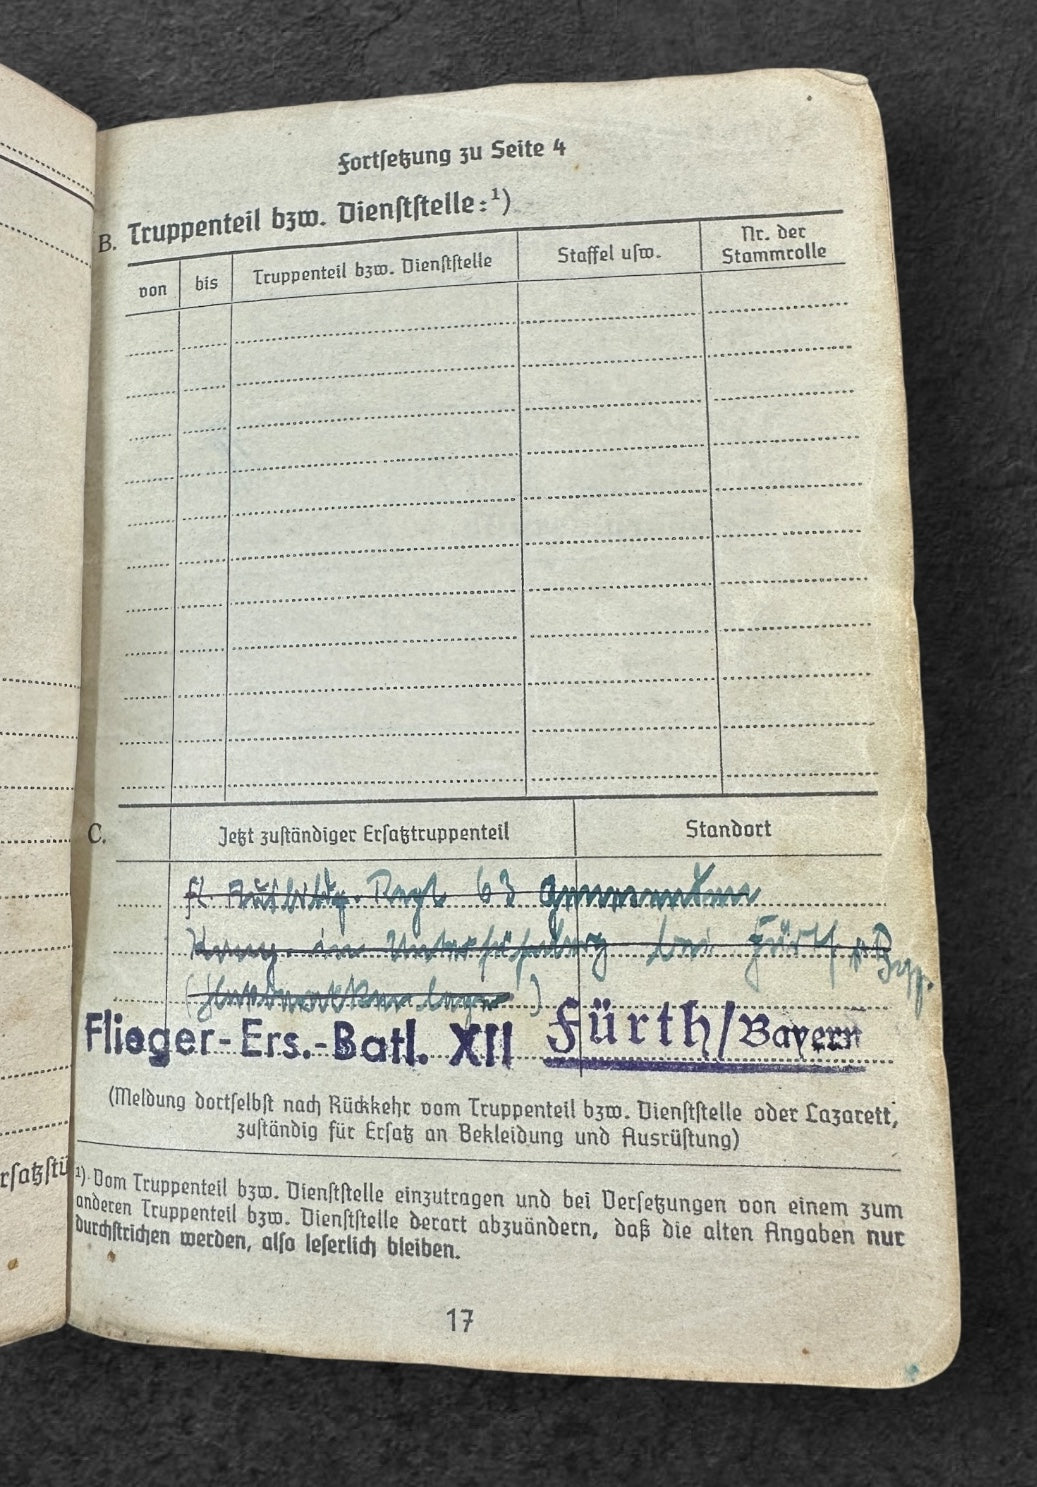 Fortsetzung zu Seite 4
B. Truppenteil bzw. Dienststelle:¹)
von bis Truppenteil bzw. Dienststelle Staffel usw. Nr. der Stammrolle
C. Jetzt zuständiger Ersatztruppenteil Standort
Fl. Ausbildg. Regt 63
in bei Fürth
Flieger-Ers.-Batl. XII Fürth/Bayern
(Meldung dortselbst nach Rückkehr vom Truppenteil bzw. Dienststelle oder Lazarett,
zuständig für Ersatz an Bekleidung und Ausrüstung)
¹) Vom Truppenteil bzw. Dienststelle einzutragen und bei Versetzungen von einem zum
anderen Truppenteil bzw. Dienststelle derart abzuändern, daß die alten Angaben nur
durchstrichen werden, also leserlich bleiben.
17